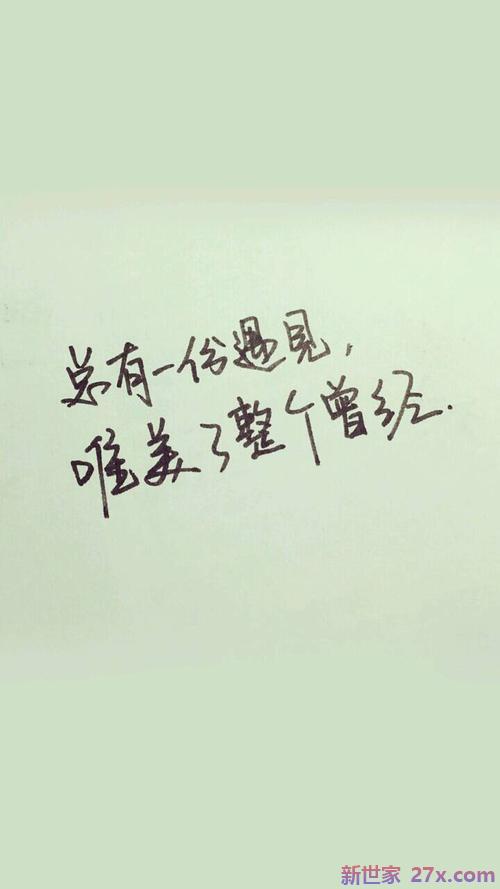 总有一份遇见,
唯美了整个曾经.
新世家 27x.com